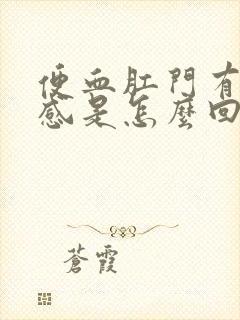 便血肛門有
感是怎麼回
蒼霞